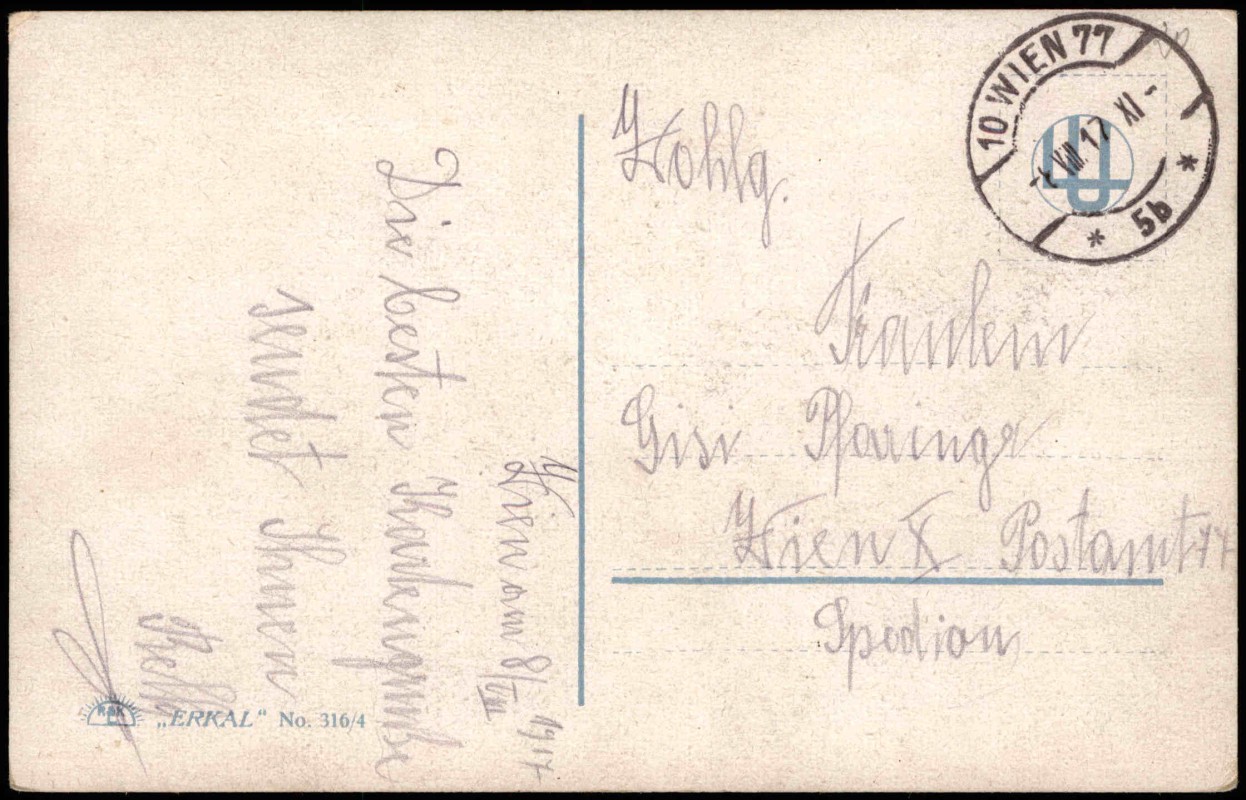 10 WIEN 77
VIII. 17 XI
* 5b *
Wohlg.
Fräulein
Gisi Pfaringr
Wien X Postamt 77
Spedion
Wien am 8/VIII 1917
Die besten Kartengrüße
sendet Ihnen
R & K
L
„ERKAL" No. 316/4